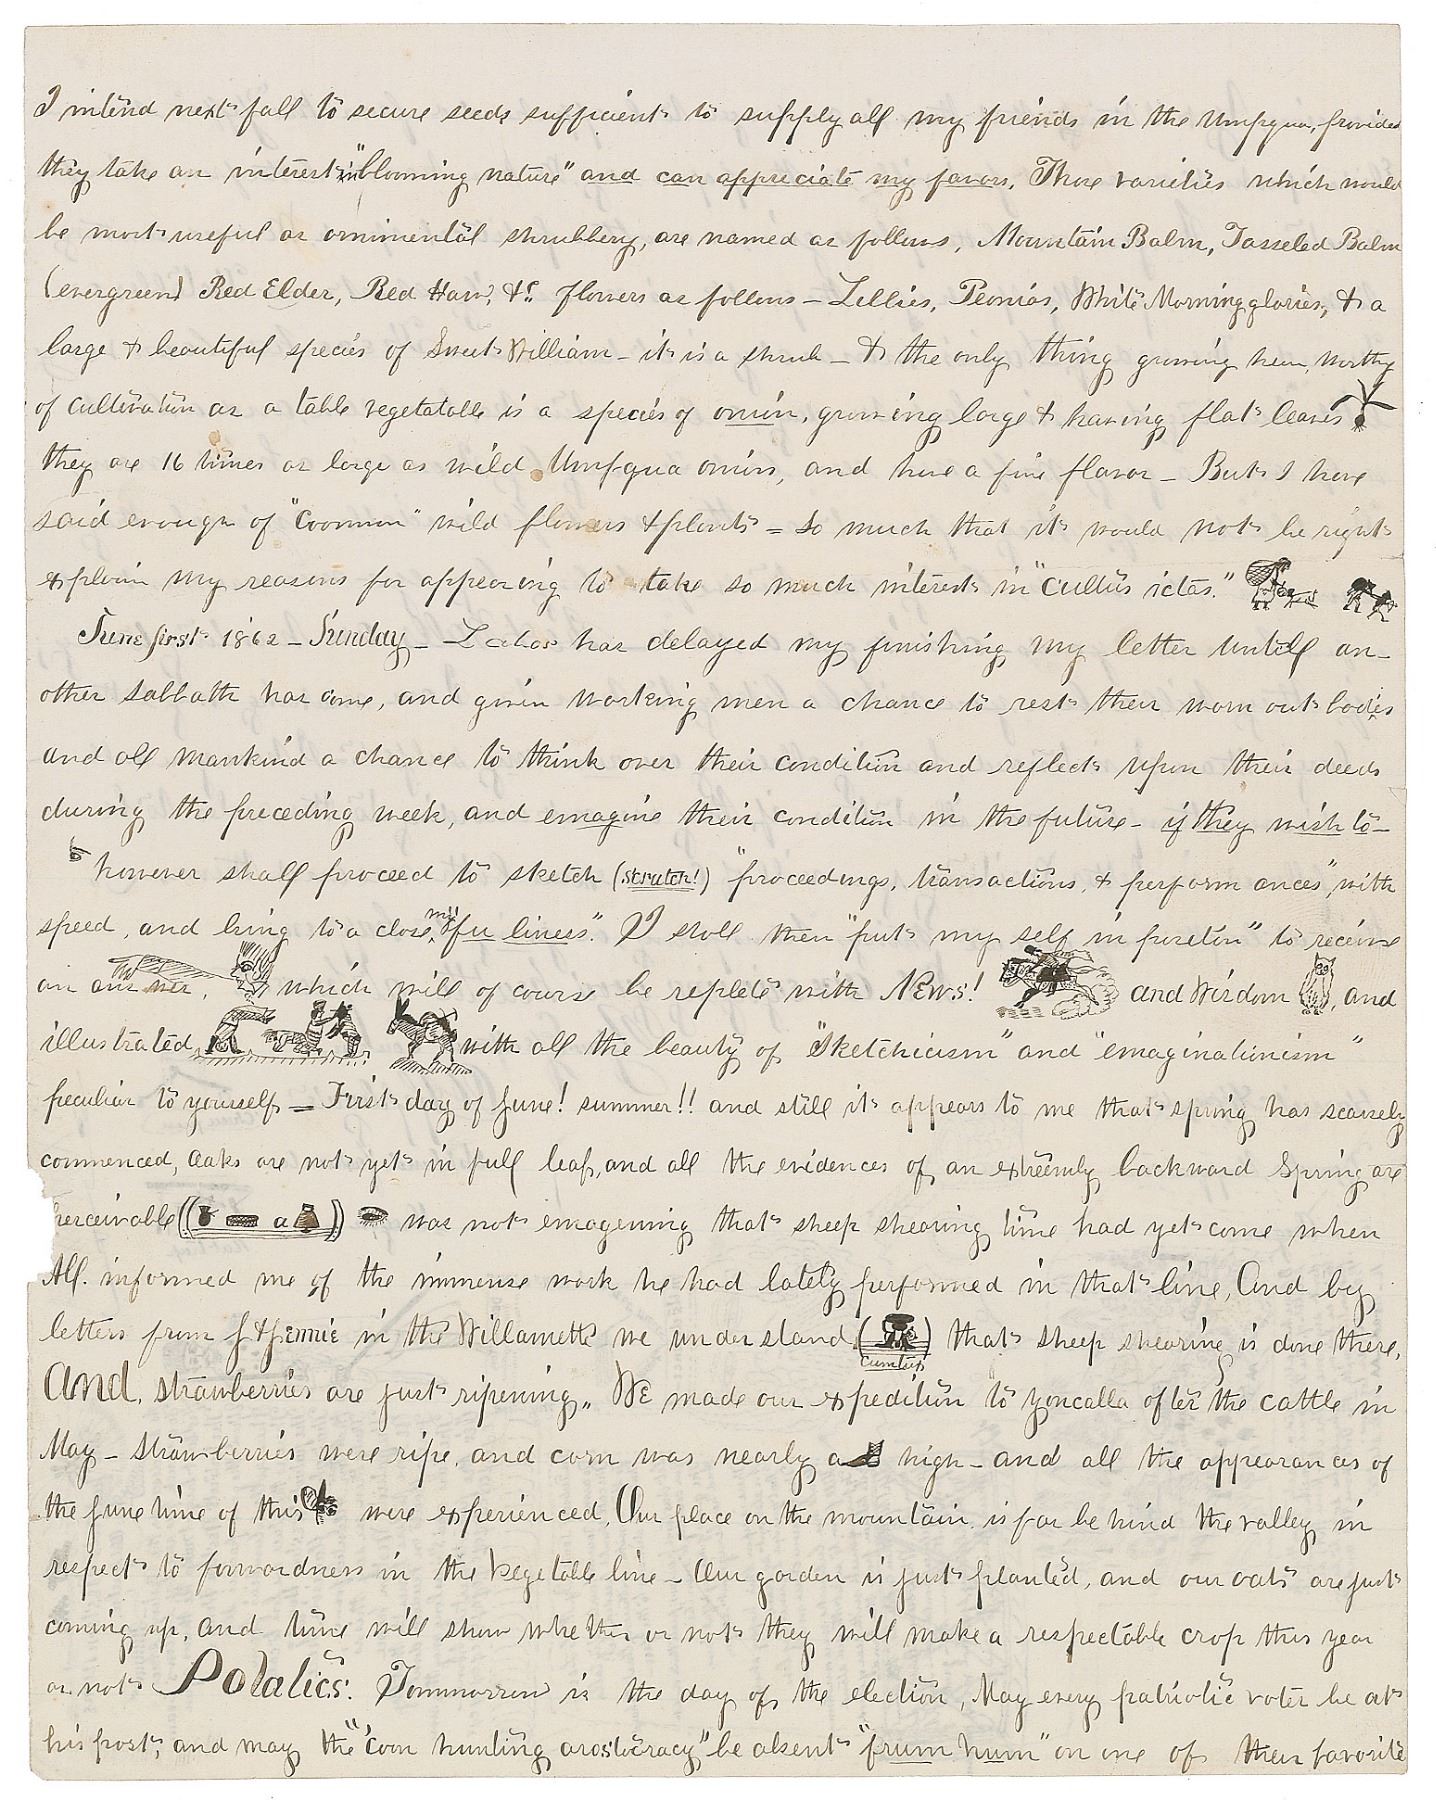 I intend next fall to secure seeds sufficient to supply all my friends in the Umpqua, provided
they take an interest in "blooming nature" and can appreciate my favors. Those varieties which would
be most useful as ornimental shrubbery, are named as follows, Mountain Balm, Tasseled Balm
(evergreen) Red Elder, Red Haw, &c. flowers as follows - Lillies, Peonias, White Morning glories, & a
large & beautiful species of Sweet William - it is a shrub - & the only thing growing here, worthy
of cultivation as a table vegetatable is a species of onion, growing large & having flat leaves
they are 16 times as large as wild Umpqua onions, and have a fine flavor - But I have
said enough of "Coommon" wild flowers & plants = So much that it would not be right
explain my reasons for appearing to take so much interest in "Cultus ictas."
June first 1862 - Sunday - Labor has delayed my finishing my letter untill an-
other sabbath has come, and given working men a chance to rest their worn out bodies
and all mankind a chance to think over their condition and reflect upon their deeds
during the preceding week, and emagine their condition in the future - if they wish to -
however shall proceed to sketch (scratch!) "proceedings, transactions, & perform ances", with
speed, and bring to a close, my "fu lines". I shall then "put my self in posetion" to receive
an answer, which will of course be replete with NEws! and Wisdom, and
illustrated with all the beauty of "Sketchicism" and "emaginationism"
peculiar to yourself - First day of June! summer!! and still it appears to me that spring has scarsely
commenced, oaks are not yet in full leaf, and all the evidences of an extreemly backward Spring are
perceivable (( a )) was not emagening that sheep shearing time had yet come when
Alf. informed me of the immense work he had lately performed in that line, And by
letters from J & Jennie in the Willamette we understand ( ) that sheep shearing is done there,
and, strawberries are just ripening,, WE made our expedition to Yoncalla after the cattle in
May - strawberries were ripe, and corn was nearly a high - and all the appearances of
the June time of this were experienced, Our place on the mountain is far be hind the valley in
respect to forwardness in the Vegetable line - Our garden is just planted, and our oats are just
coming up, and time will show whether or not they will make a respectable crop this year
or not Polatics. Tommorrow is the day of the election, May every patriotic voter be at
his post, and may the "coon hunting arostocracy" be absent "frum hum" on one of their favorite